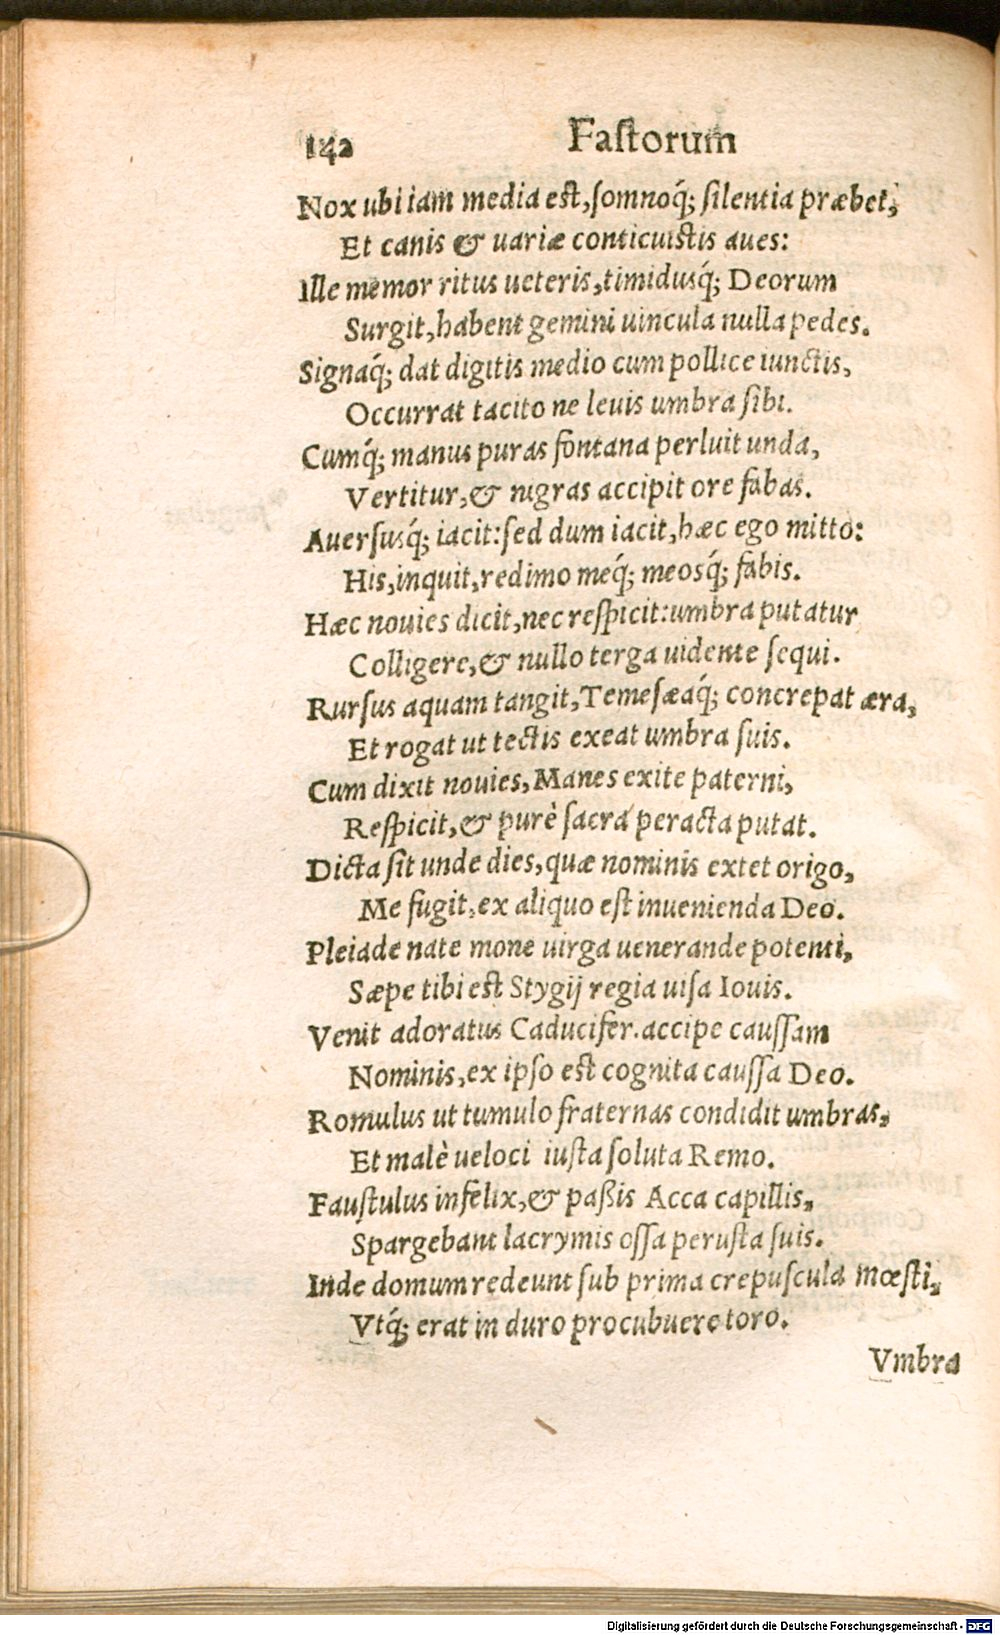 142 Faſtorum
Nox ubi iam media eſt, ſomnoq́; ſilentia præbet,
Et canis & uariæ conticuiſtis aues:
Ille memor ritus ueteris, timidusq́; Deorum
Surgit, habent gemini uincula nulla pedes.
Signaq́; dat digitis medio cum pollice iunctis,
Occurrat tacito ne leuis umbra ſibi.
Cumq́; manus puras fontana perluit unda,
Vertitur, & nigras accipit ore fabas.
Auerſusq́; iacit: ſed dum iacit, hæc ego mitto:
His, inquit, redimo meq́; meosq́; fabis.
Hæc nouies dicit, nec reſpicit: umbra putatur
Colligere, & nullo terga uidente ſequi.
Rurſus aquam tangit, Temeſæaq́; concrepat æra,
Et rogat ut tectis exeat umbra ſuis.
Cum dixit nouies, Manes exite paterni,
Reſpicit, & purè ſacra peracta putat.
Dicta ſit unde dies, quæ nominis extet origo,
Me fugit, ex aliquo eſt inuenienda Deo.
Pleiade nate mone uirga uenerande potenti,
Sæpe tibi eſt Stygij regia uiſa Iouis.
Venit adoratus Caducifer. accipe cauſſam
Nominis, ex ipſo eſt cognita cauſſa Deo.
Romulus ut tumulo fraternas condidit umbras,
Et malè ueloci iuſta ſoluta Remo.
Fauſtulus infelix, & paßis Acca capillis,
Spargebant lacrymis oſſa peruſta ſuis.
Inde domum redeunt ſub prima crepuscula mœſti,
Vtq́; erat in duro procubuere toro.
Vmbra
Digitalisierung gefördert durch die Deutsche Forschungsgemeinschaft - DFG